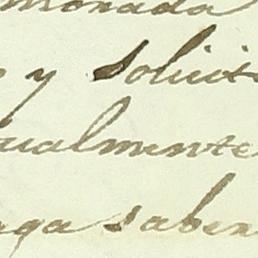 monada
y solicit
ualmente
nga saber